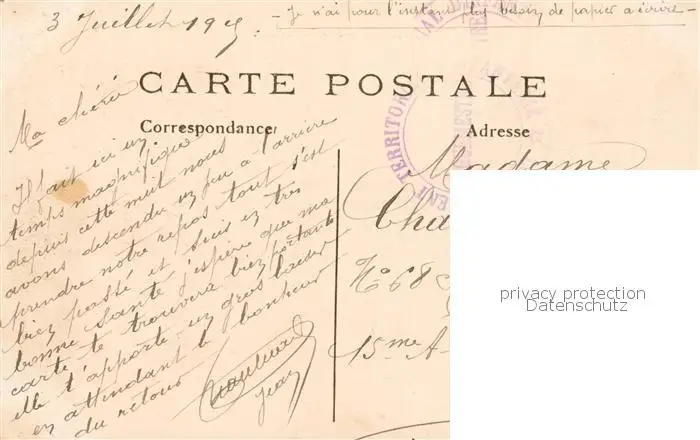 3 Juillet 1915. - Je n'ai pour l'instant plus besoin de papier a ecrire -
CARTE POSTALE
Correspondance
Adresse
TERRITOR
Ma chérie
Il fait ici un
temps magnifique
depuis cette nuit nous
avons descendu un peu a l'arrière
prendre notre repos tout s'est
bien passé et suis en très
bonne santé j'espère que ma
carte te trouvera bien portante
elle t'apporte un gros baiser
en attendant le bonheur
du retour
Jean
Madame
Cha
N° 68
15me A
privacy protection
Datenschutz